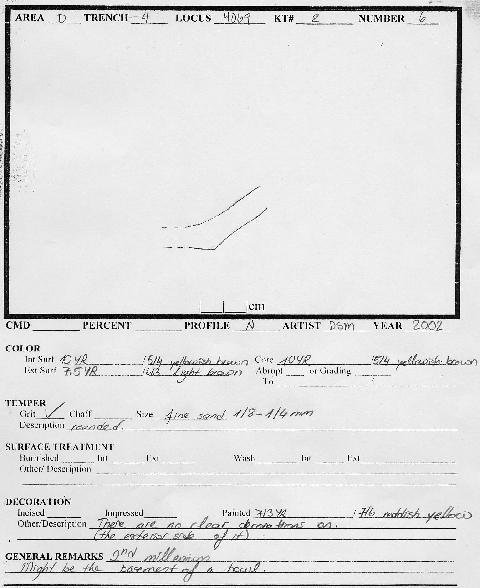 AREA D TRENCH 4 LOCUS 4069 KT# 2 NUMBER 6
cm
CMD PERCENT PROFILE N ARTIST DSM YEAR 2002
COLOR
Int Surf 10YR 5/4 yellowish brown Core 10YR 5/4 yellowish brown
Ext Surf 7.5YR 6/3 light brown Abrupt or Grading
To
TEMPER
Grit ✓ Chaff Size fine sand 1/8-1/4mm
Description rounded
SURFACE TREATMENT
Burnished Int Ext Wash Int Ext
Other/ Description
DECORATION
Incised Impressed Painted 7/6 reddish yellow
Other/Description There are no clear decorations on
(the exterior side of it)
GENERAL REMARKS 2nd millennium
Might be the basement of a bowl.